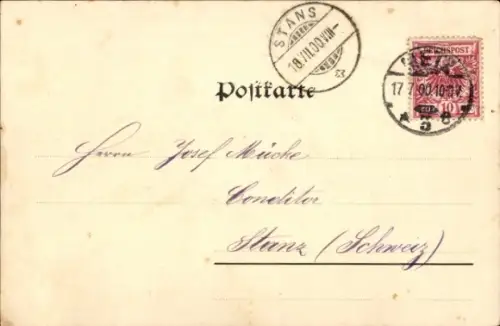 STANS
18.VII.00.VIII-
REICHSPOST
METZ
17.7.00.10-11V.
* 5 8
10
Postkarte
Herrn Josef Mücke
Conditor
Stanz (Schweiz)